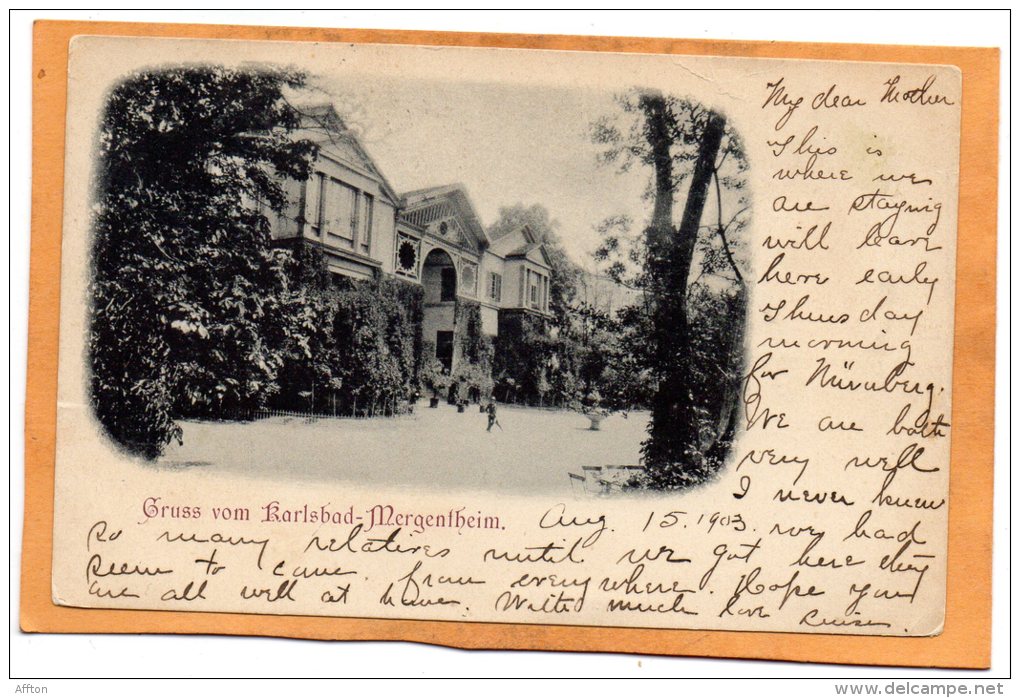 My dear Mother
This is
where we
are staying
will leave
here early
Thursday
morning
for Nürnberg.
We are both
very well
I never knew
Gruss vom Karlsbad-Mergentheim.
Aug. 15. 1903. we had
so many relatives until we got here they
seem to come from everywhere. Hope you
are all well at home. With much love
Afften
www.delcampe.net